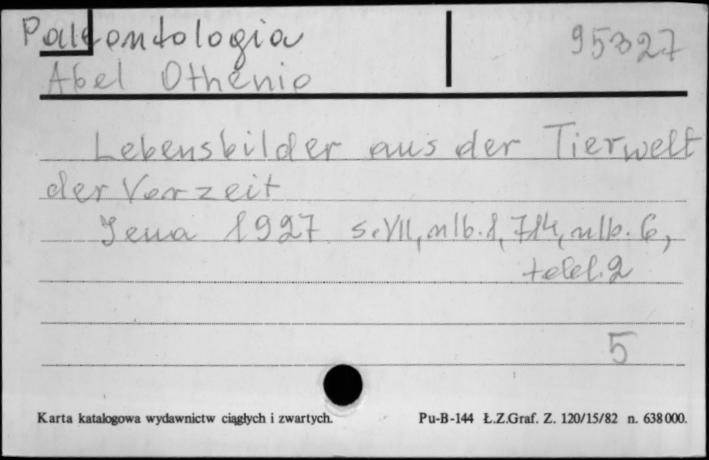 Paleontologia 95327
Abel Othenio
Lebensbilder aus der Tierwelt
der Vorzeit
Jena 1927 s. VII, nlb. 1, 714, nlb. 6,
tabl. 2
5
Karta katalogowa wydawnictw ciągłych i zwartych. Pu-B-144 Ł.Z.Graf. Z. 120/15/82 n. 638 000.